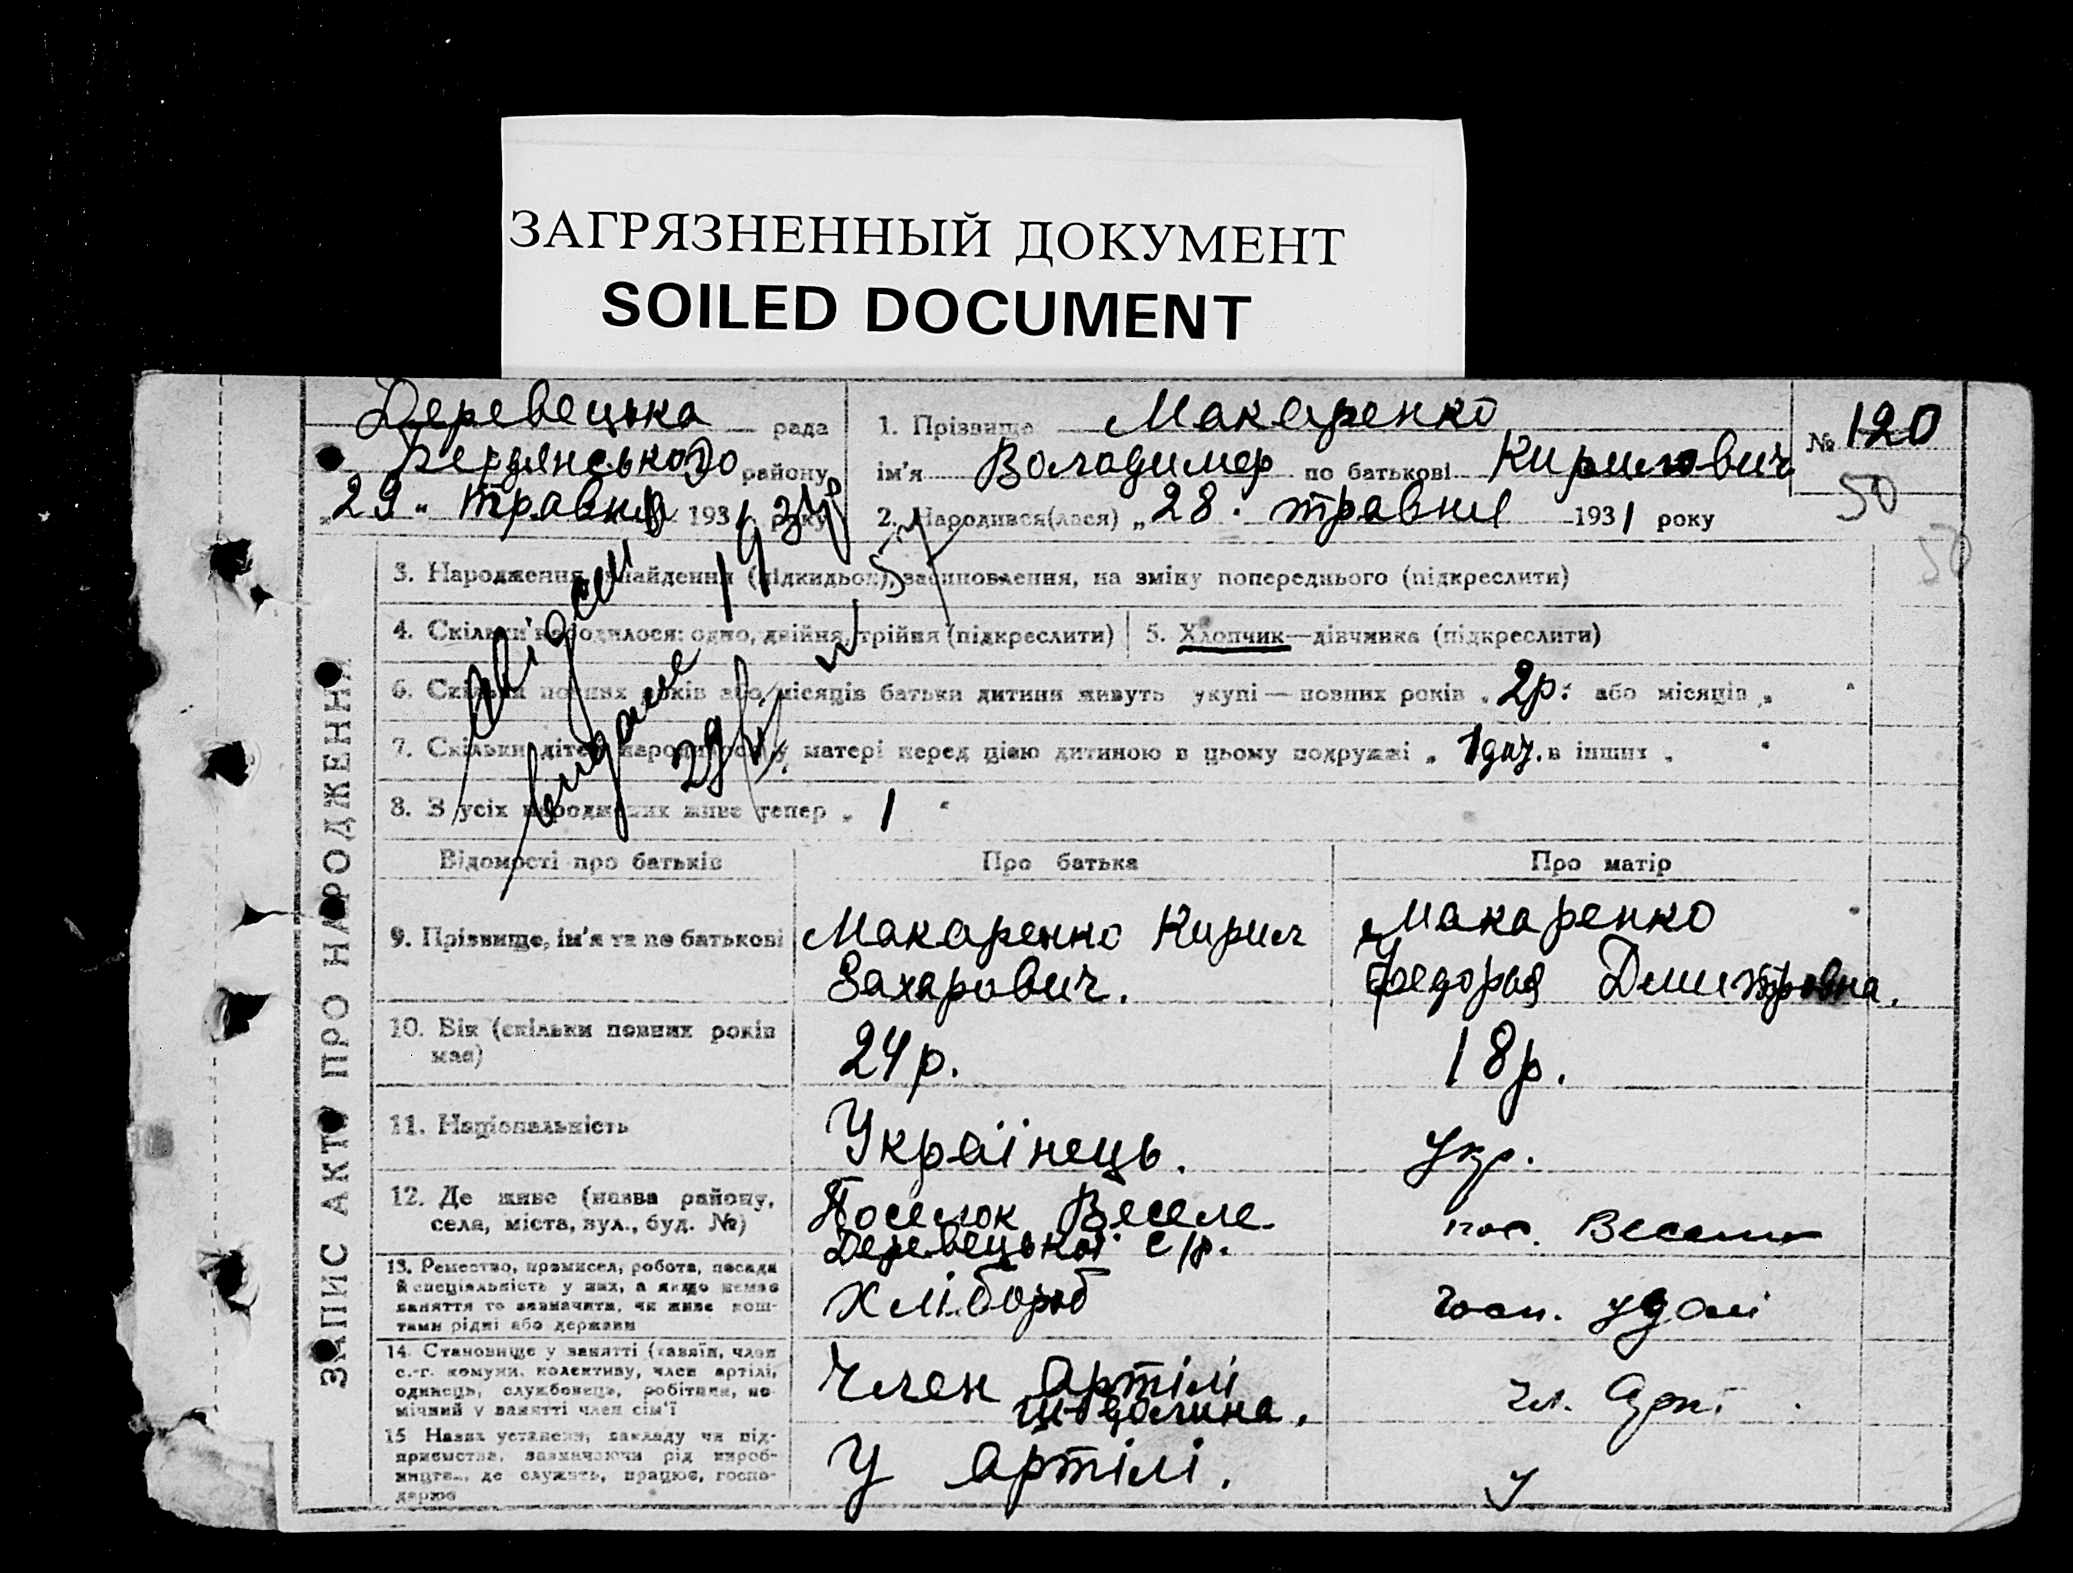 ЗАГРЯЗНЕННЫЙ ДОКУМЕНТ
SOILED DOCUMENT
Деревецька рада
Бердянського району
„29" травня 1931 року
1. Прізвище Макаренко
ім'я Володимер по батькові Кирилович
№ 120
50
2. Народився(лася) „28" травня 1931 року
50
3. Народження, знайдення (підкидьок), засиновлення, на зміну попереднього (підкреслити)
4. Скільки народилося: одно, двійня, трійня (підкреслити)
5. Хлопчик—дівчинка (підкреслити)
6. Скільки повних років або місяців батьки дитини живуть укупі — повних років „2р." або місяців „ "
7. Скільки дітей народилось у матері перед цією дитиною в цьому подружжі „ 1 в інших „ "
8. З усіх народжених живе тепер „ 1 "
видане
Відомості про батьків
Про батька
Про матір
9. Прізвище, ім'я та по батькові
Макаренко Кирил
Захарович.
Макаренко
Федорія Дмитровна.
10. Вік (скільки повних років
має)
24р.
18р.
11. Національність
Українець.
Укр.
12. Де живе (назва району,
села, міста, вул., буд. №)
Поселок Веселе
Деревецької с/р.
пос. Веселе
13. Ремество, промисел, робота, посада
й спеціальність у них, а якщо немає
заняття то зазначити, чи живе кош-
тами рідні або держави
Хлібороб
14. Становище у занятті (хазяїн, член
с.-г. комуни, колективу, член артілі,
одинець, службовець, робітник, по-
мічний у занятті член сім'ї
Член артілі
чл. Арт.
15 Назва установи, закладу чи під-
приємства, зазначаючи рід вироб-
ництва, де служить, працює, госпо-
дарює
У артілі.
У
ЗАПИС АКТУ ПРО НАРОДЖЕННЯ